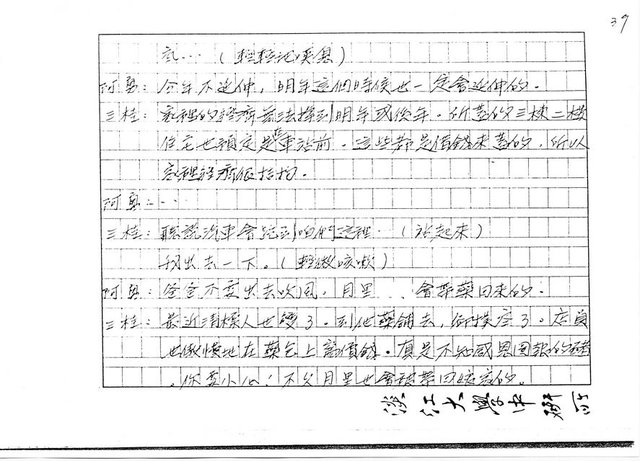 37
氣…（輕輕地嘆息）
阿勇：今年不延伸，明年這個時候也一定會延伸的。
三桂：家裡的經濟無法撐到明年或後年。所蓋的三棟二樓
住宅也預定是車站前。這些都是借錢來蓋的，所以
家裡經濟很拮拘。
阿勇：…
三桂：聽說汽車會跑到咱們這裡…（站起來）
我出去一下。（輕微咳嗽）
阿勇：爸爸不要出去吹風，月里 會帶藥回來的。
三桂：最近清樣人也變了。到他藥舖去，
也傲慢地在藥包上記價錢。真是不知感恩圖報的
你要小心：不久月里也會被帶回娘家的。
淡江大學中研所